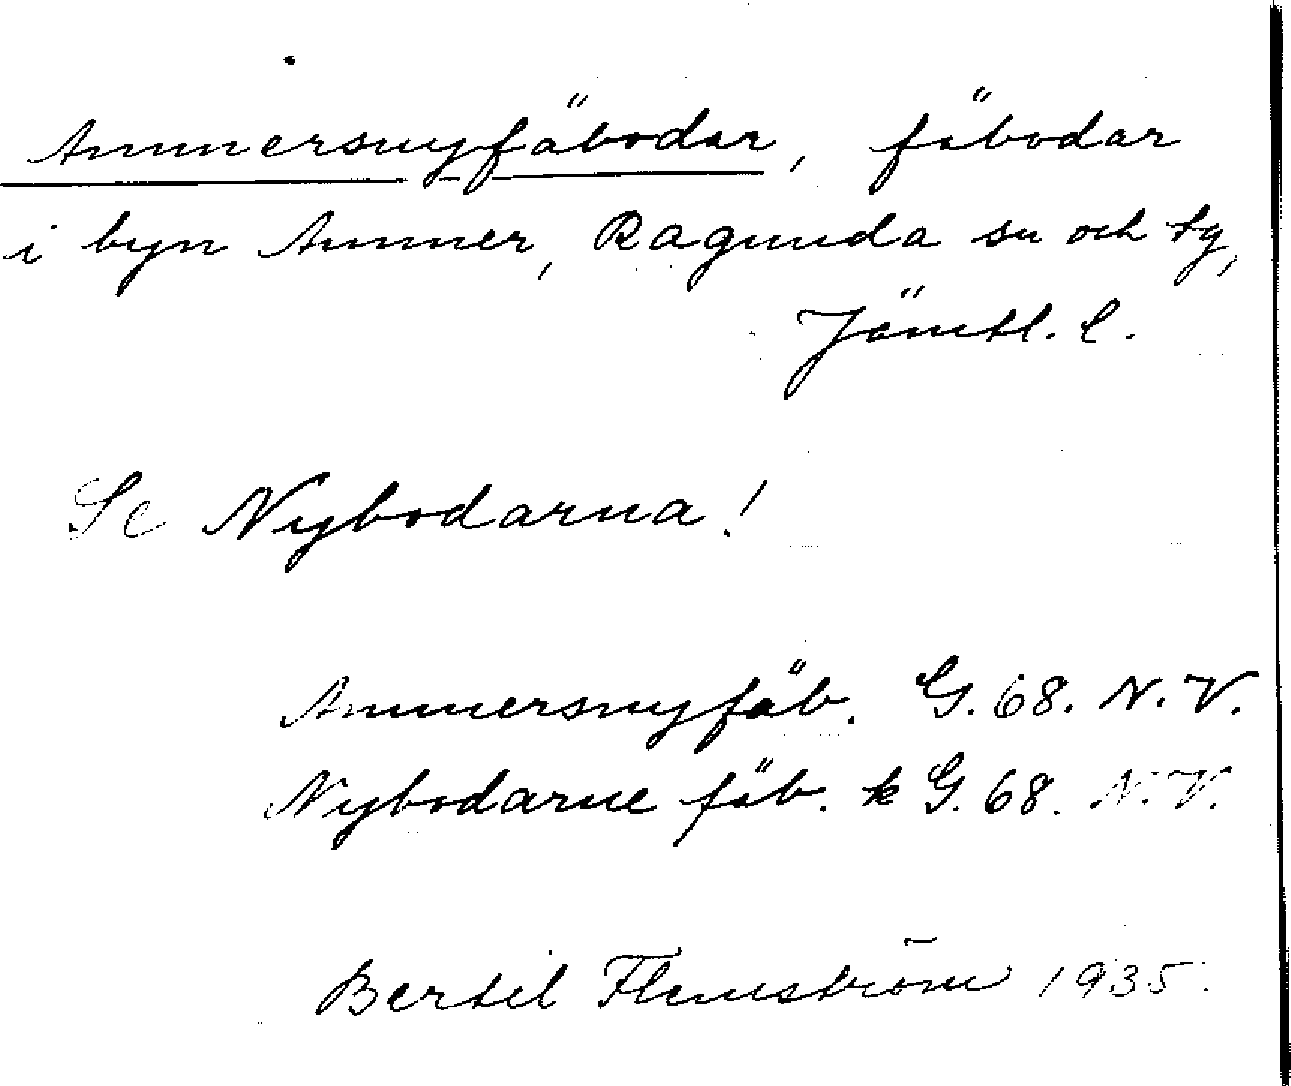 Ammersnyfäbodar, fäbodar
i byn Ammer, Ragunda sn och tg,
Jämtl. l.
Se Nybodarna!
Ammersnyfäb. G. 68. N. V.
Nybodarne fäb. k G. 68. N. V.
Bertil Flemström 1935.